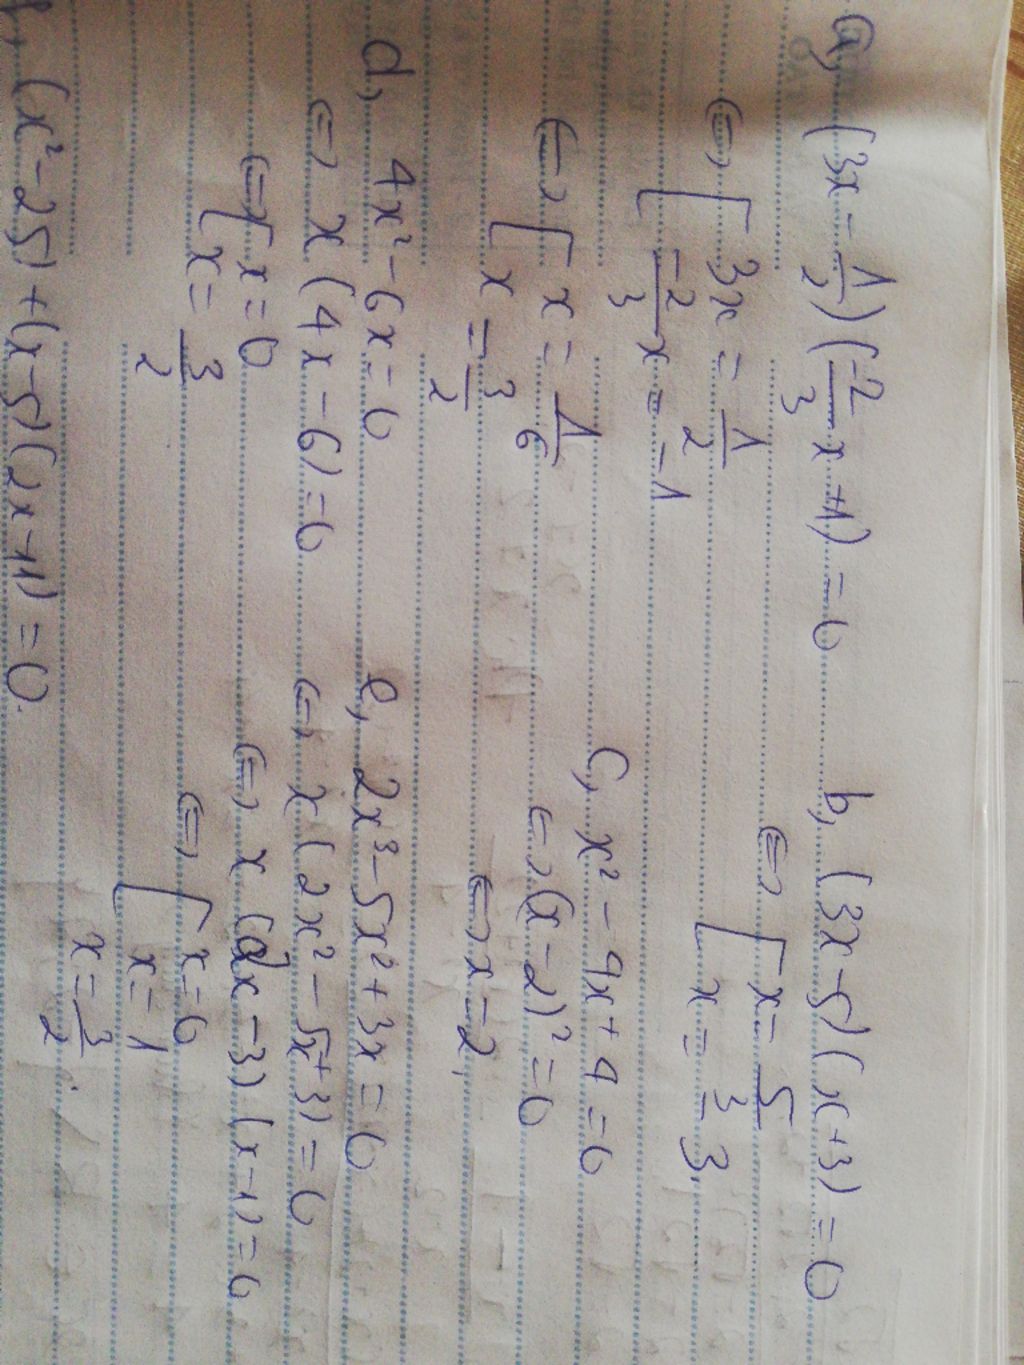 a, (3x - 1/2)(-2/3 x + 1) = 0
<=> [ 3x = 1/2
-2/3 x = -1
<=> [ x = 1/6
x = 3/2
b, (3x - 5)(x + 3) = 0
<=> [ x = 5/3
x = - 3
c, x² - 4x + 4 = 0
<=> (x - 2)² = 0
<=> x = 2.
d, 4x² - 6x = 0
<=> x (4x - 6) = 0
<=> [ x = 0
x = 3/2
e, 2x³ - 5x² + 3x = 0
<=> x (2x² - 5x + 3) = 0
<=> x (2x - 3) (x - 1) = 0
<=> [ x = 0
x = 1
x = 3/2.
f, (x² - 25) + (x - 5)(2x - 11) = 0.